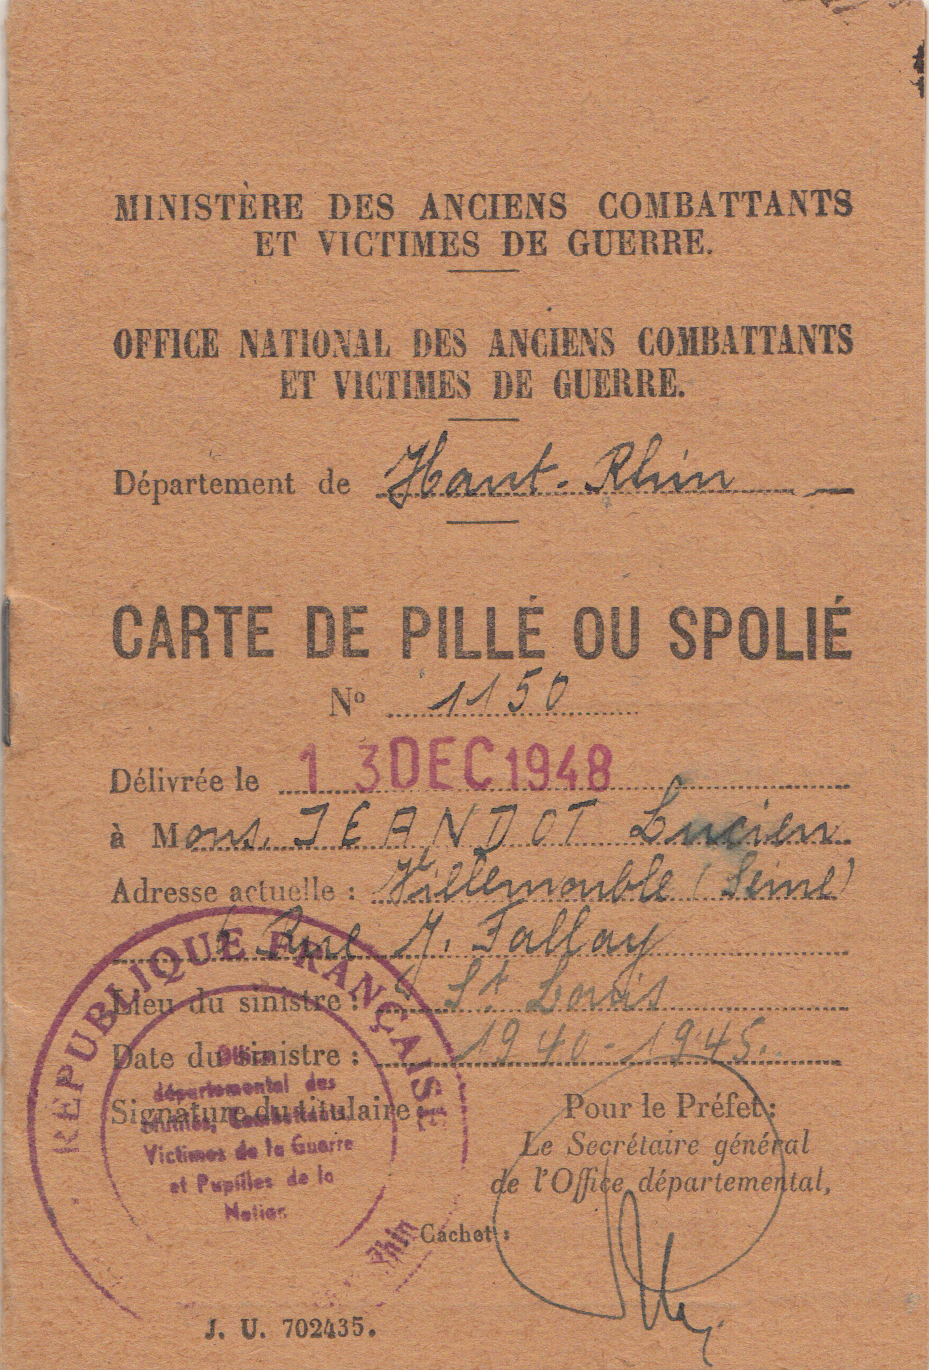 MINISTÈRE DES ANCIENS COMBATTANTS
ET VICTIMES DE GUERRE.
OFFICE NATIONAL DES ANCIENS COMBATTANTS
ET VICTIMES DE GUERRE.
Département de Haut-Rhin
CARTE DE PILLÉ OU SPOLIÉ
Nº 1150
Délivrée le 13 DEC 1948
à Mons. JEANDOT Lucien
Adresse actuelle : Villemomble (Seine)
Rue J. Fallay
Lieu du sinistre : St Louis
Date du sinistre : 1940-1945.
Signature du titulaire :
Pour le Préfet :
Le Secrétaire général
de l'Office départemental,
Cachet :
RÉPUBLIQUE FRANÇAISE
Office
départemental des
Mutilés, Combattants
Victimes de la Guerre
et Pupilles de la
Nation
Rhin
J. U. 702435.